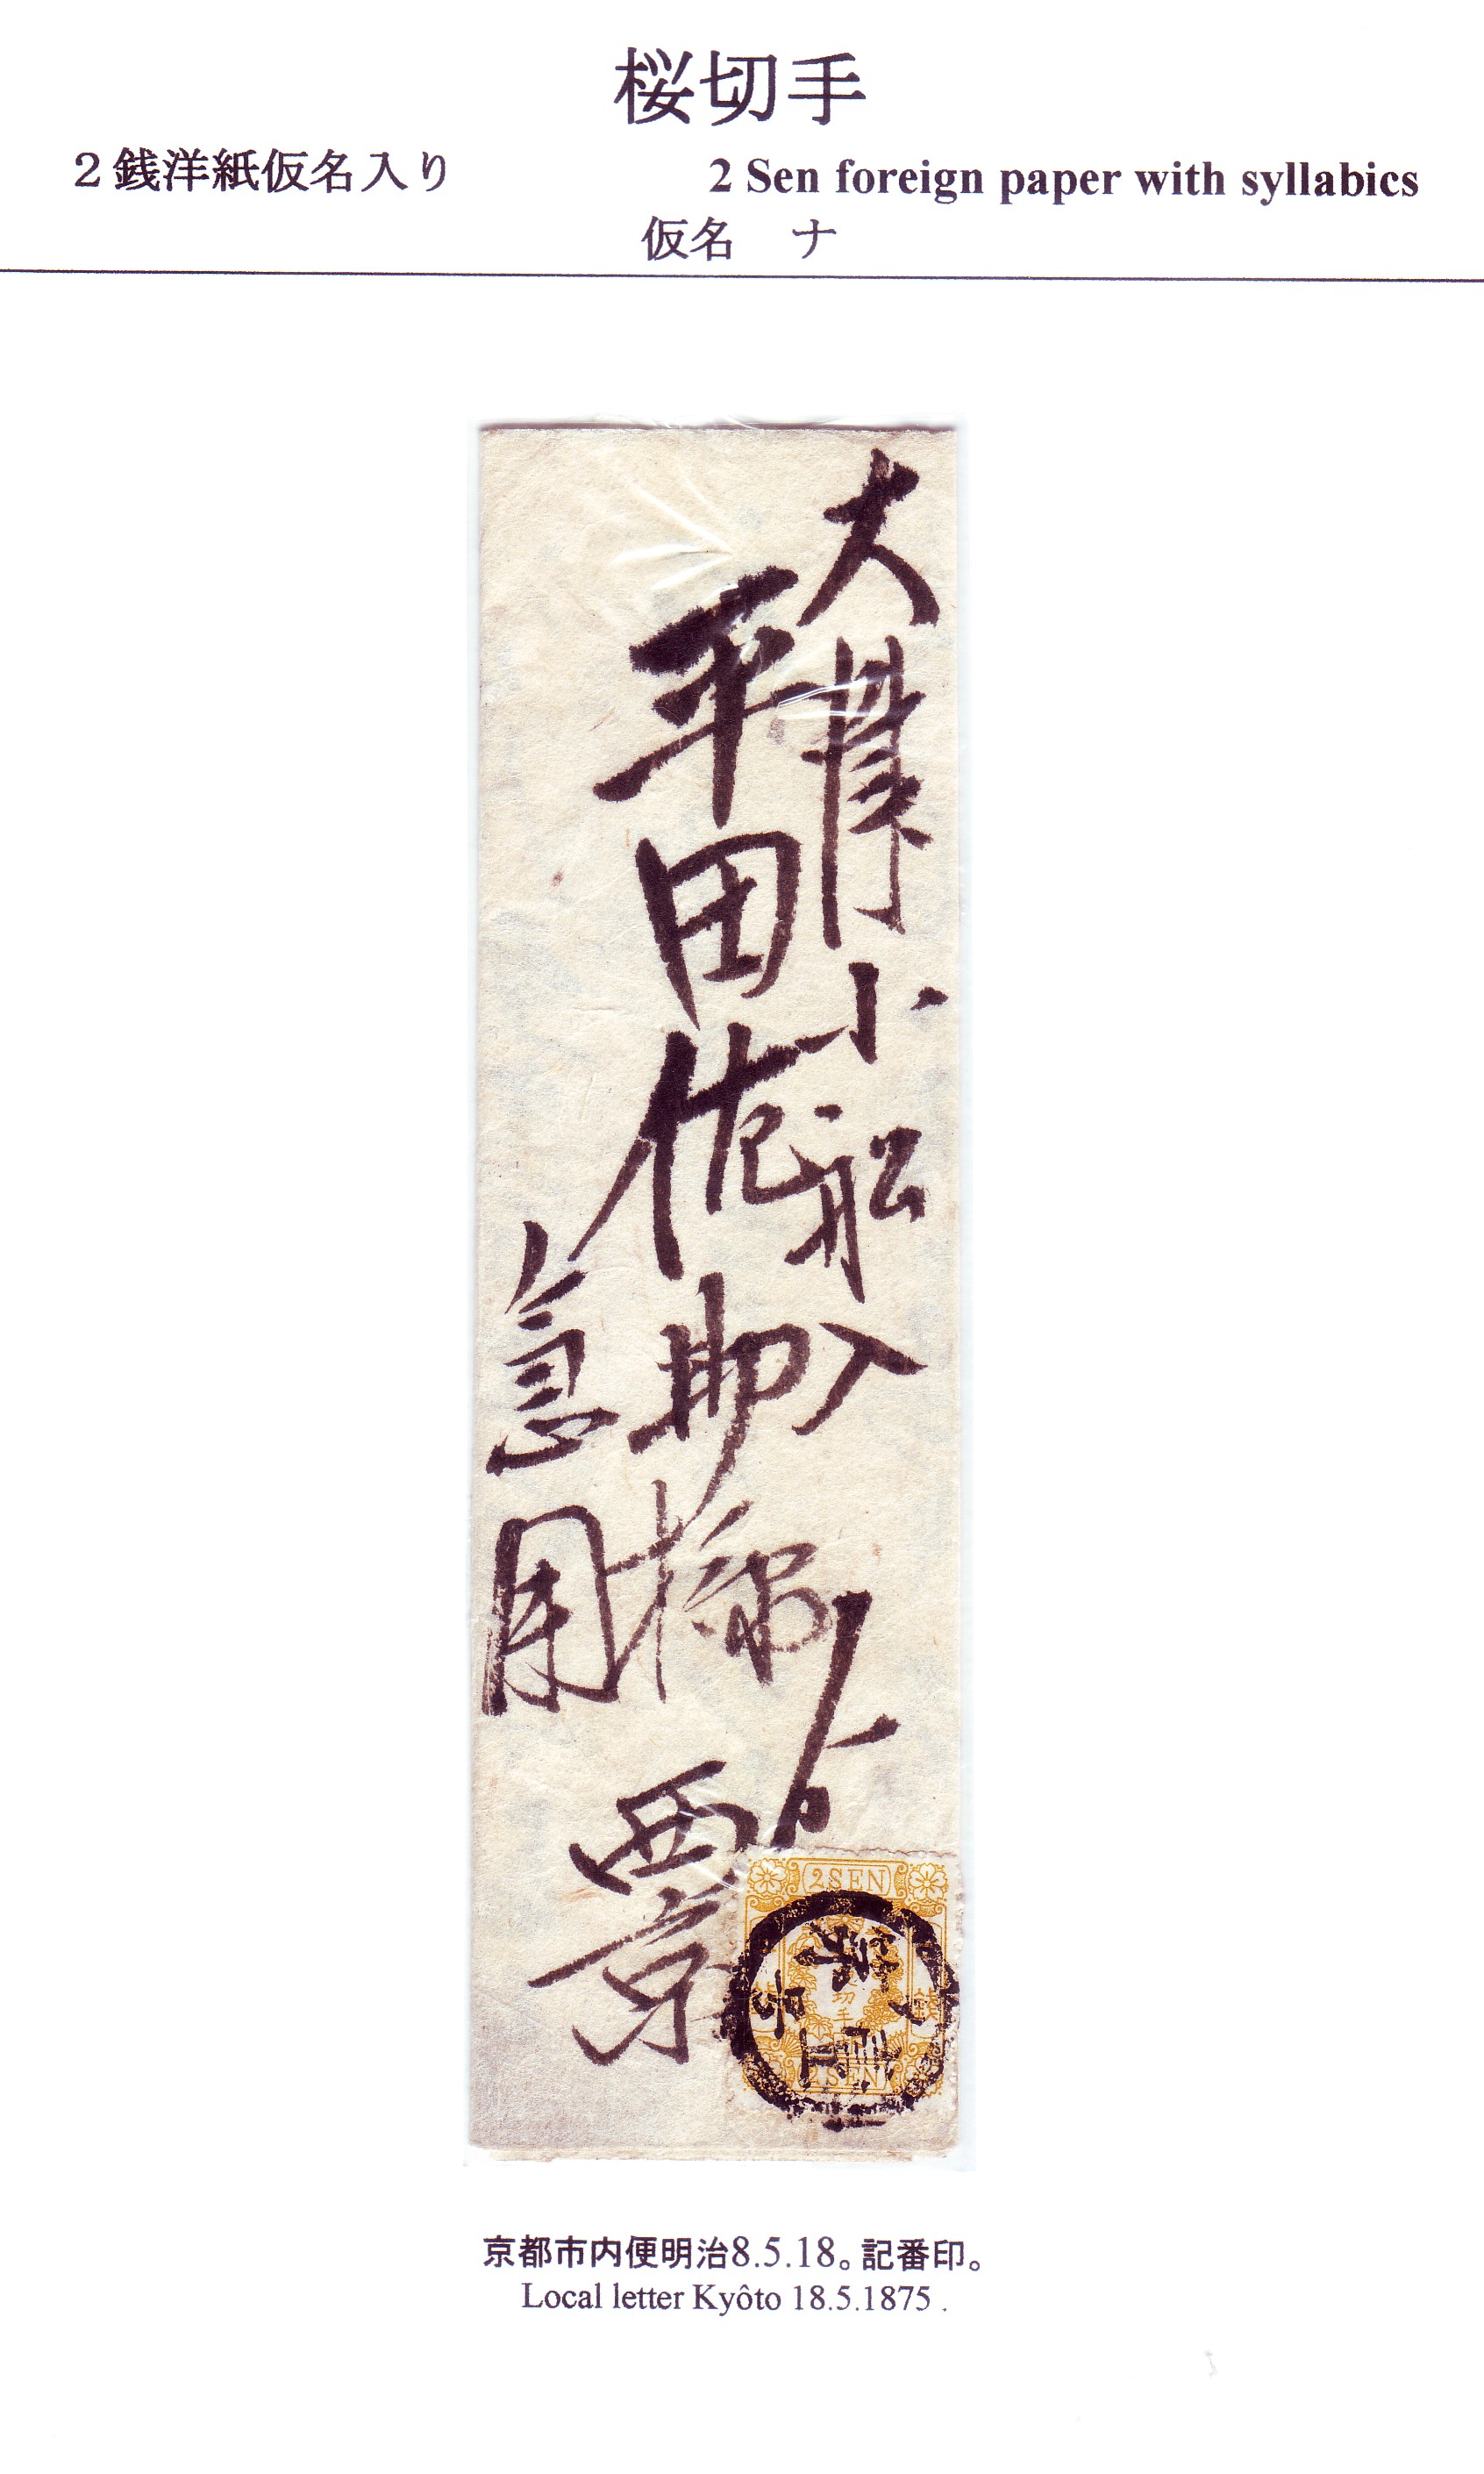 桜切手
2銭洋紙仮名入り
2 Sen foreign paper with syllabics
仮名 ナ
大津小船入
平田佐助様
急用
西京
2 SEN
切手
2 SEN
京都市内便明治8.5.18。記番印。
Local letter Kyôto 18.5.1875 .